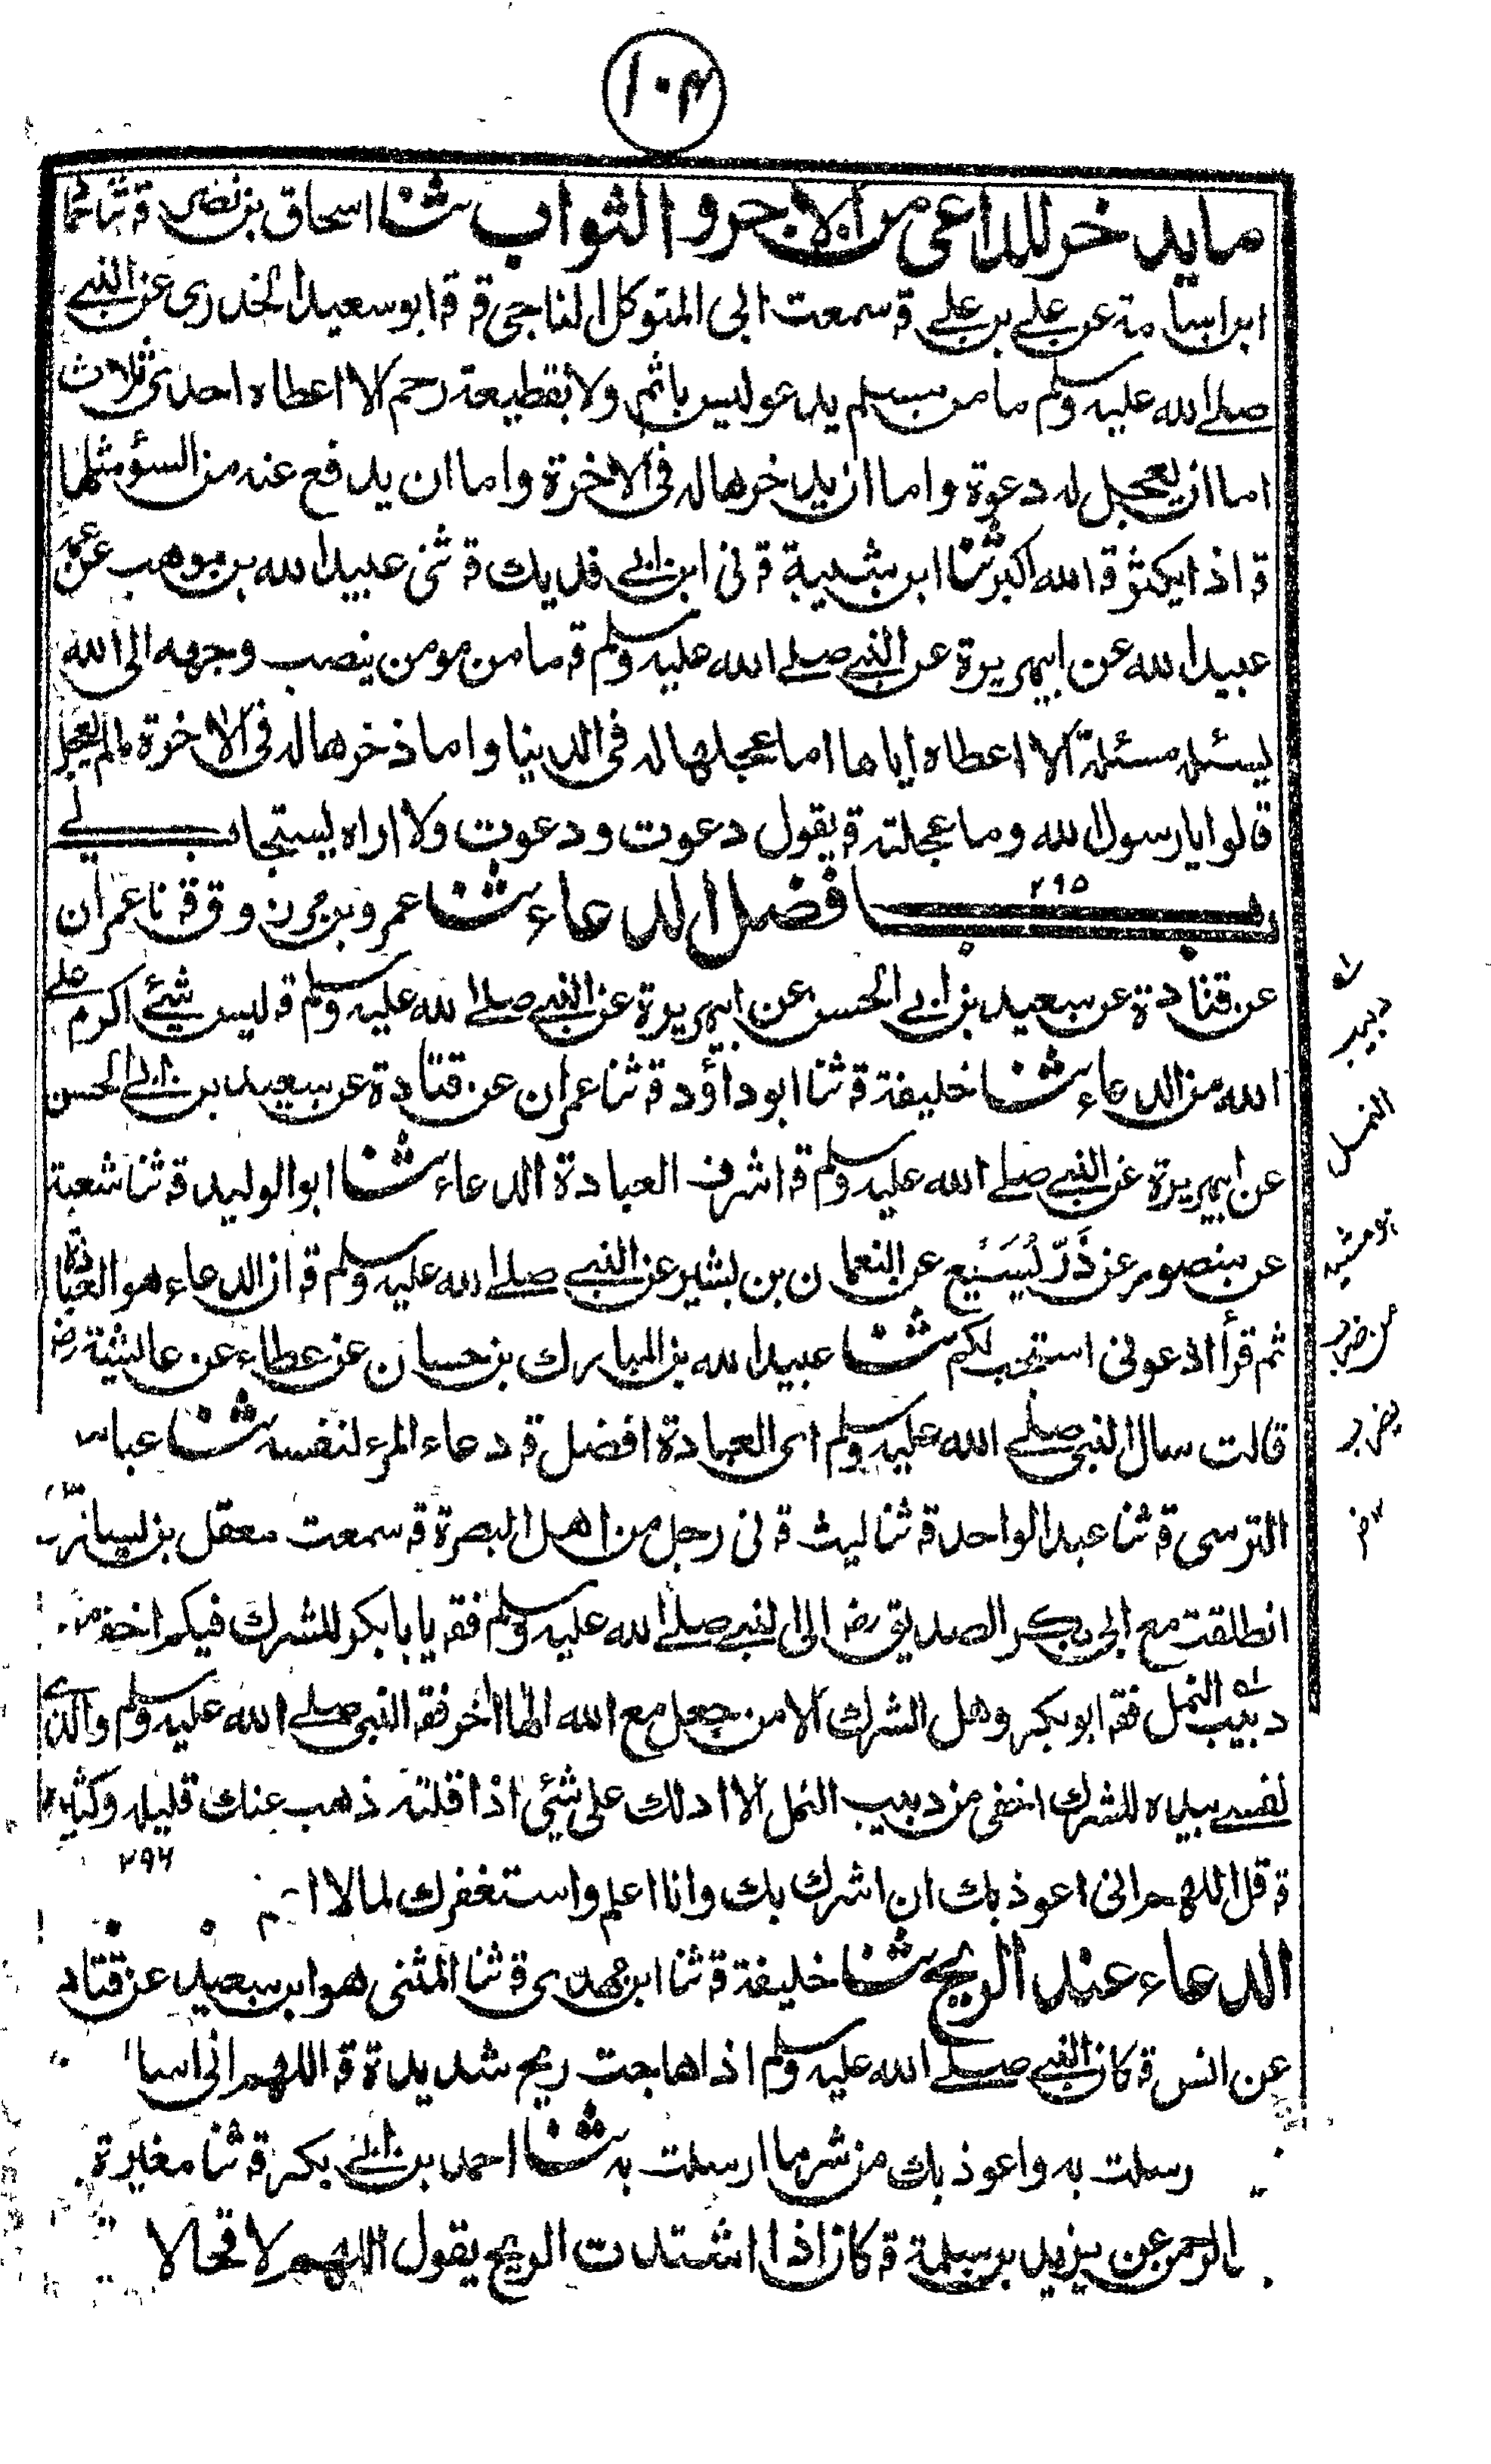 ١٠٣
ما يدخر للداعي من الاجر والثواب ثنا اسحاق بن نصر قة ثنا حما
ابن اسامة عن علي بن علي قة سمعت ابي المتوكل الناجي قة قة ابو سعيد الخدري عن النبي
صلے الله عليه وسلم ما من مسلم يدعو ليس باثم ولا بقطيعة رحم الا اعطاه احدى ثلاث
اما ان يعجل له دعوة واما ان يدخرها له في الاخرة واما ان يدفع عنه من السؤ مثلها
قة اذا يكثر قة الله اكبر ثنا ابن شيبة قة ني ابن ابي فديك قة ثني عبيد الله بن موهب عن عمه
عبيد الله عن ابيهريرة عن النبي صلے الله عليه وسلم قة ما من مومن ينصب وجهه الى الله
يسئله مسئلة الا اعطاه اياها اما عجلها له في الدينيا واما ذخرها له في الاخرة مالم يعجل
قالوا يا رسول الله وما عجلته قة يقول دعوت ودعوت ولا اراه يستجاب لي
٢٩٥
باب فضل الدعاء ثنا عمرو بن مرزوق قة نا عمران
عن قتادة عن سعيد بن ابي الحسن عن ابيهريرة عن النبي صلے الله عليه وسلم قة ليس شيئ اكرم علے
الله من الدعاء ثنا خليفة قة ثنا ابو داؤد قة ثنا عمران عن قتادة عن سعيد بن ابي الحسن
عن ابيهريرة عن النبي صلے الله عليه وسلم قة اشرف العبادة الدعاء ثنا ابو الوليد قة ثنا شعبة
عن منصور عن ذَرّ يُسَيْع عن النعمان بن بشير عن النبي صلے الله عليه وسلم قة ان الدعاء هو العبادة
ثم قرأ ادعوني استجب لكم ثنا عبيد الله بن المبارك بن حسان عن عطاء عن عايشة رض
قالت سال النبي صلے الله عليه وسلم اى العبادة افضل قة دعاء المرء لنفسه ثنا عباس
النرسي قة ثنا عبد الواحد قة ثنا ليث قة ني رجل من اهل البصرة قة سمعت معقل بن يسار
انطلقت مع ابي بكر الصديق رض الى النبي صلے الله عليه وسلم فقة يا بابكر للشرك فيكم اخفى من
دبيب النمل فقة ابو بكر وهل الشرك الا من جعل مع الله الها اٰخر فقة النبي صلے الله عليه وسلم والذي
نفسي بيده للشرك اخفى من دبيب النمل الا ادلك على شئي اذا قلته ذهب عنك قليله وكثيره
٢٩٦
قة قل اللهم اني اعوذ بك ان اشرك بك وانا اعلم واستغفرك لما لا
الدعاء عند الريح ثنا خليفة قة ثنا ابن مهدي قة ثنا المثنى هو ابن سعيد عن قتاد
عن انس قة كان النبي صلے الله عليه وسلم اذا هاجت ريح شديدة قة اللهم اني اسا
رسلت به واعوذ بك من شر ما ارسلت به ثنا احمد بن ابي بكر قة ثنا مغيرة
الرحمن عن يزيد بن سلمة قة كان اذا اشتدت الريح يقول اللهم لاقحا لا
دبيب
النمل